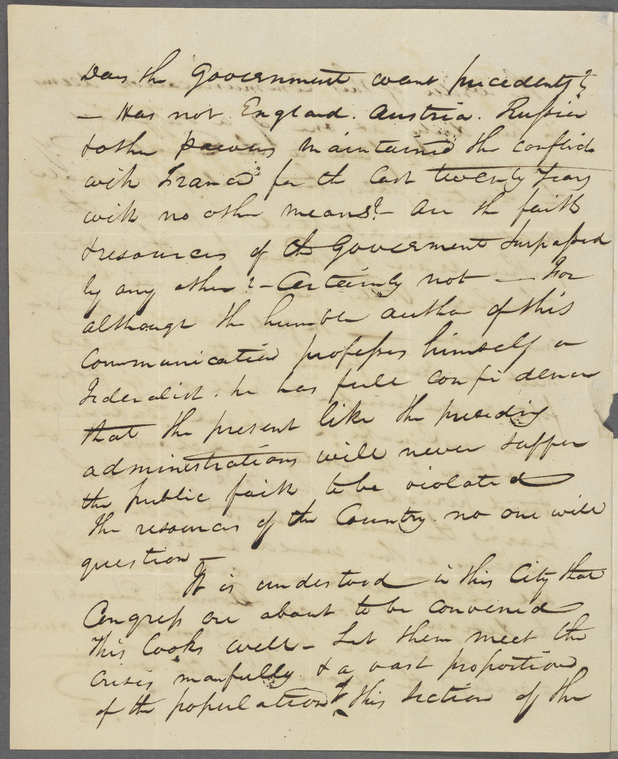 Does the Government want precedents?
— Has not England. Austria. Russia
& other powers maintained the conflict
with France for the last twenty Years
with no other means? — Are the faith
& resources of the Government surpassed
by any other? — Certainly not — For
although the humble author of this
Communication professes himself a
Federalist. he has full confidence
that the present like the preceding
administrations will never suffer
the public faith to be violated
the resources of the Country no one will
question —
It is understood in this City that
Congress are about to be convened
This looks well — Let them meet the
crisis manfully & a vast proportion
of the population of this section of the